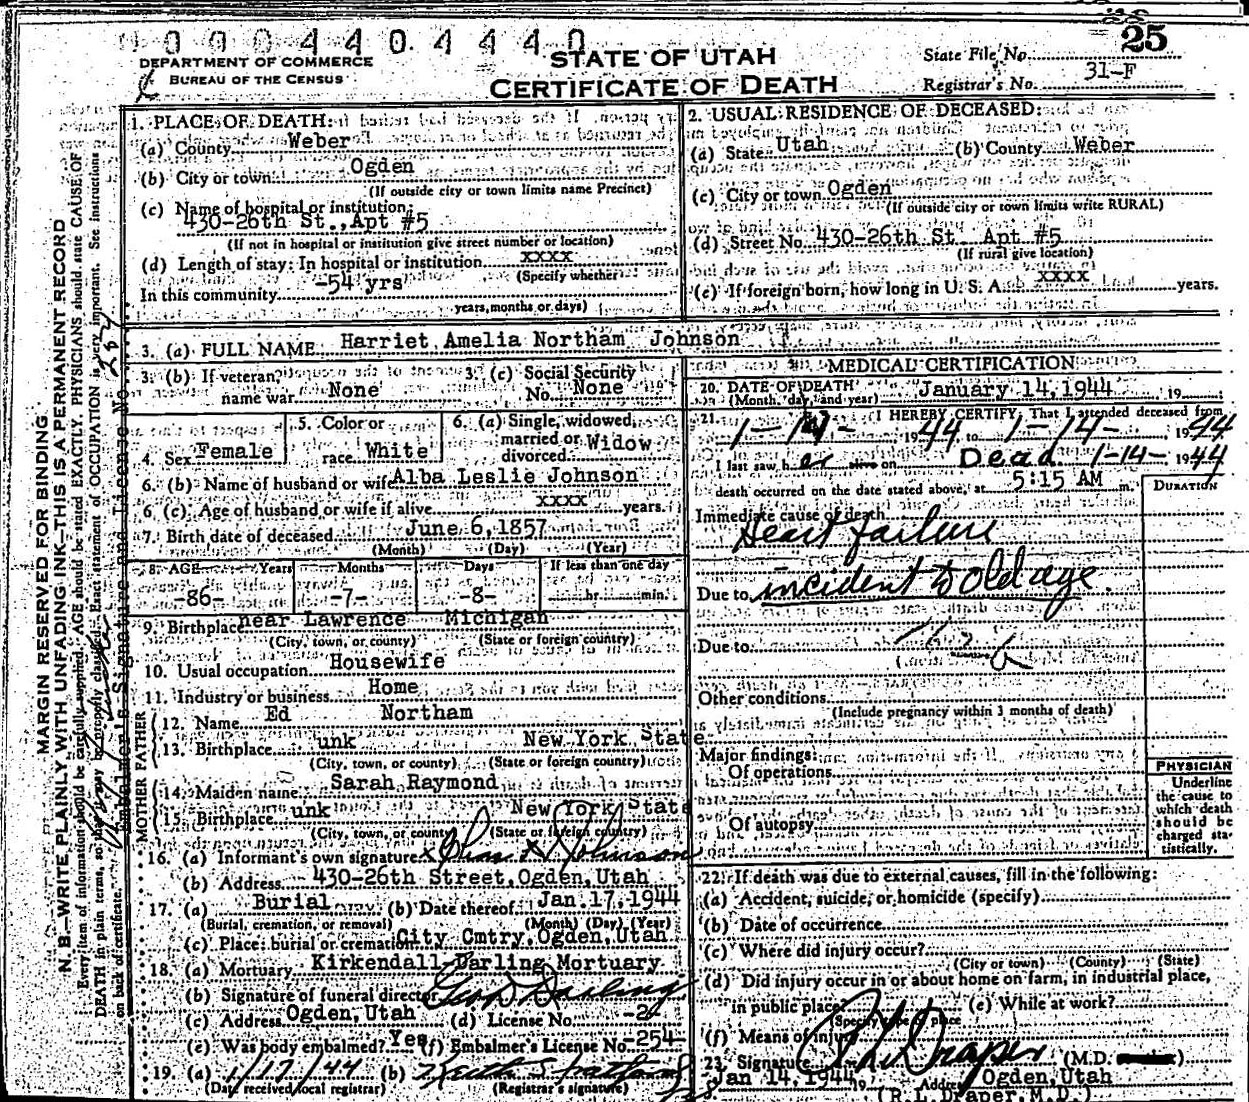 0 0 0 4 4 0. 4 4 4 0
25
DEPARTMENT OF COMMERCE
BUREAU OF THE CENSUS
STATE OF UTAH
CERTIFICATE OF DEATH
State File No.
Registrar's No. 31-F
MARGIN RESERVED FOR BINDING
N. B.—WRITE PLAINLY WITH UNFADING INK—THIS IS A PERMANENT RECORD
Every item of information should be carefully supplied. AGE should be stated EXACTLY. PHYSICIANS should state CAUSE OF
DEATH in plain terms, so that it may be properly classified. Exact statement of OCCUPATION is very important. See instructions
on back of certificate.
Embalmer's Signature and License No.
1. PLACE OF DEATH:
(a) County Weber
(b) City or town Ogden
(If outside city or town limits name Precinct)
(c) Name of hospital or institution:
430-26th St., Apt #5
(If not in hospital or institution give street number or location)
(d) Length of stay: In hospital or institution xxxx
(Specify whether
In this community -54 yrs
years, months or days)
2. USUAL RESIDENCE OF DECEASED:
(a) State Utah (b) County Weber
(c) City or town Ogden
(If outside city or town limits write RURAL)
(d) Street No. 430-26th St Apt #5
(If rural give location)
(e) If foreign born, how long in U. S. A. xxxx years.
3. (a) FULL NAME Harriet Amelia Northam Johnson
3. (b) If veteran, name war None
3 (c) Social Security No. None
4. Sex Female
5. Color or race White
6. (a) Single, widowed, married or divorced Widow
6. (b) Name of husband or wife Alba Leslie Johnson
6 (c). Age of husband or wife if alive xxxx years.
7. Birth date of deceased June 6, 1857
(Month) (Day) (Year)
8. AGE Years Months Days If less than one day
-86- -7- -8- hr. min.
9. Birthplace near Lawrence Michigan
(City, town, or county) (State or foreign country)
10. Usual occupation Housewife
11. Industry or business Home
FATHER
12. Name Ed Northam
13. Birthplace unk New York State
(City, town, or county) (State or foreign country)
MOTHER
14. Maiden name Sarah Raymond
15. Birthplace unk New York State
(City, town, or county) (State or foreign country)
16. (a) Informant's own signature x Chas L Johnson
(b) Address 430-26th Street, Ogden, Utah
17. (a) Burial (b) Date thereof Jan. 17, 1944
(Burial, cremation, or removal) (Month) (Day) (Year)
(c) Place: burial or cremation City Cmtry, Ogden, Utah
18. (a) Mortuary Kirkendall-Darling Mortuary
(b) Signature of funeral director Geo D Darling
(c) Address Ogden, Utah (d) License No. -2-
(e) Was body embalmed? Yes (f) Embalmer's License No. -254-
19. (a) 1/17/44 (b)
(Date received local registrar) (Registrar's signature)
MEDICAL CERTIFICATION
20. DATE OF DEATH January 14, 1944, 19
(Month, day, and year)
21. I HEREBY CERTIFY, That I attended deceased from
1-14- 1944, to 1-14-, 1944
I last saw her alive on Dead 1-14-, 1944
death occurred on the date stated above, at 5:15 AM m.
DURATION
Immediate cause of death
Heart failure
Due to incident to old age
Due to
Other conditions
(Include pregnancy within 3 months of death)
Major findings:
Of operations
Of autopsy
PHYSICIAN
Underline
the cause to
which death
should be
charged sta-
tistically.
22. If death was due to external causes, fill in the following:
(a) Accident, suicide, or homicide (specify)
(b) Date of occurrence
(c) Where did injury occur?
(City or town) (County) (State)
(d) Did injury occur in or about home on farm, in industrial place,
in public place (e) While at work?
(Specify type of place
(f) Means of injury
23. Signature R L Draper (M.D. )
Jan 14, 1944, 19 Address Ogden, Utah
(R.L. Draper, M.D.)